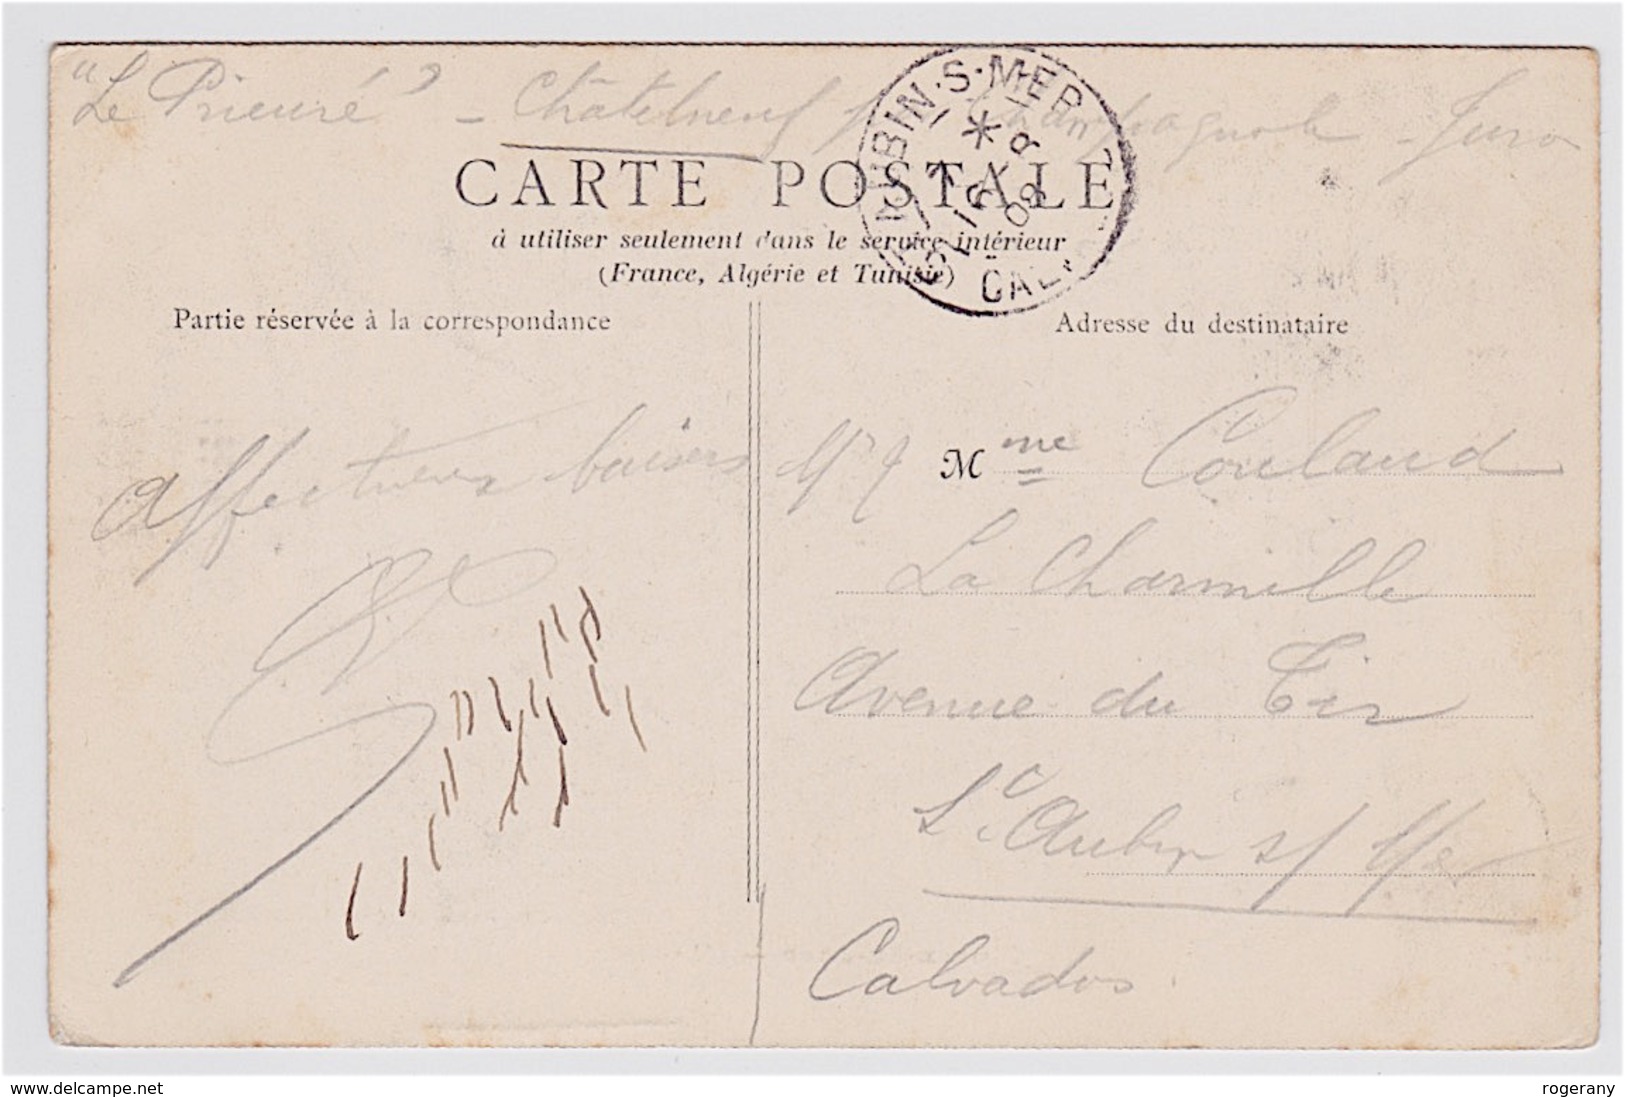 "Le Prieuré" - Châtelneuf par Champagnole - Jura
AUBIN·S·MER
09
CAL
CARTE POSTALE
à utiliser seulement dans le service intérieur
(France, Algérie et Tunisie)
Partie réservée à la correspondance
Adresse du destinataire
Affectueux baisers
Mme Coulaud
La Charmille
Avenue du Tir
St Aubin s/ Mer
Calvados.
www.delcampe.net
rogerany